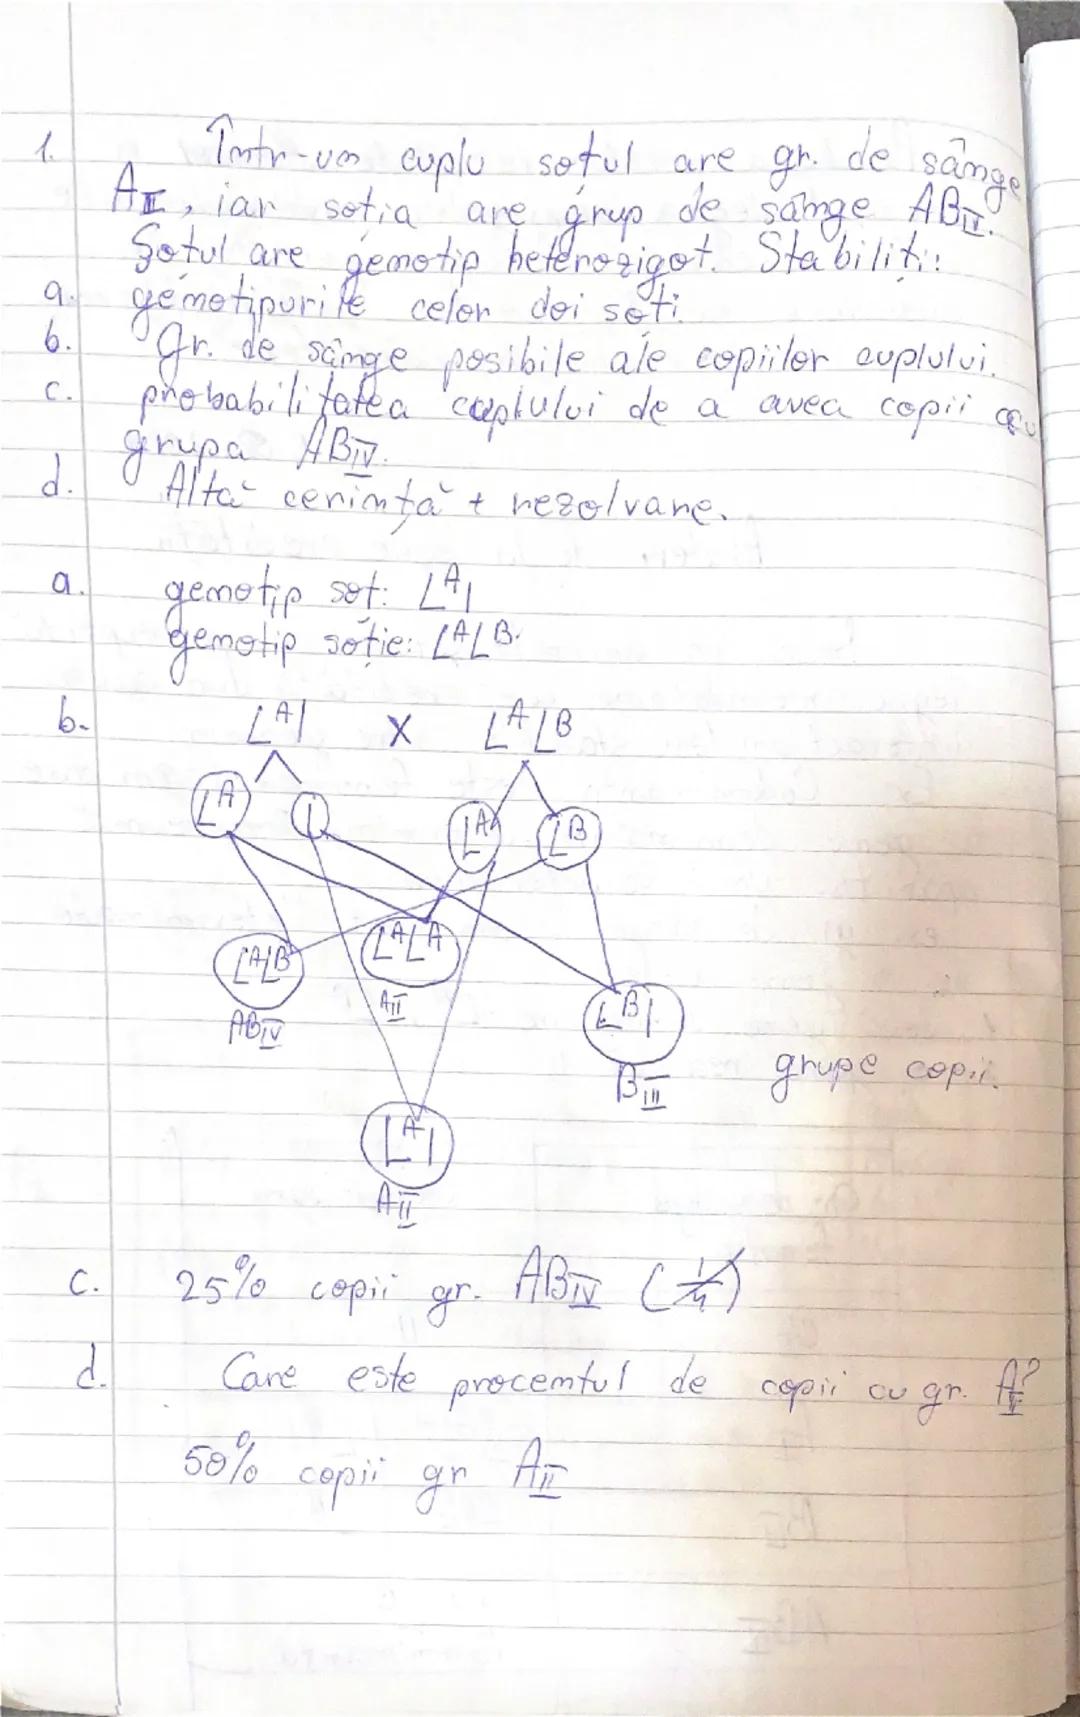 1. Într-un cuplu soțul are gr. de sânge
AII, iar soția are grup de sânge ABIV.
Soțul are genotip heterozigot. Stabiliți:
a. genotipurile celor doi soți.
b. Gr. de sânge posibile ale copiilor cuplului.
c. probabilitatea cuplului de a avea copii cu
grupa ABIV.
d. Altă cerință + rezolvare.
a. genotip soț: LAl
genotip soție: LALB.
b. LAl X LALB
LA l LA LB
LALB LALA LBl
ABIV AII BIII
grupe copii.
LAl
AII
c. 25% copii gr. ABIV (1/4)
d. Care este procentul de copii cu gr. AII?
50% copii gr AII